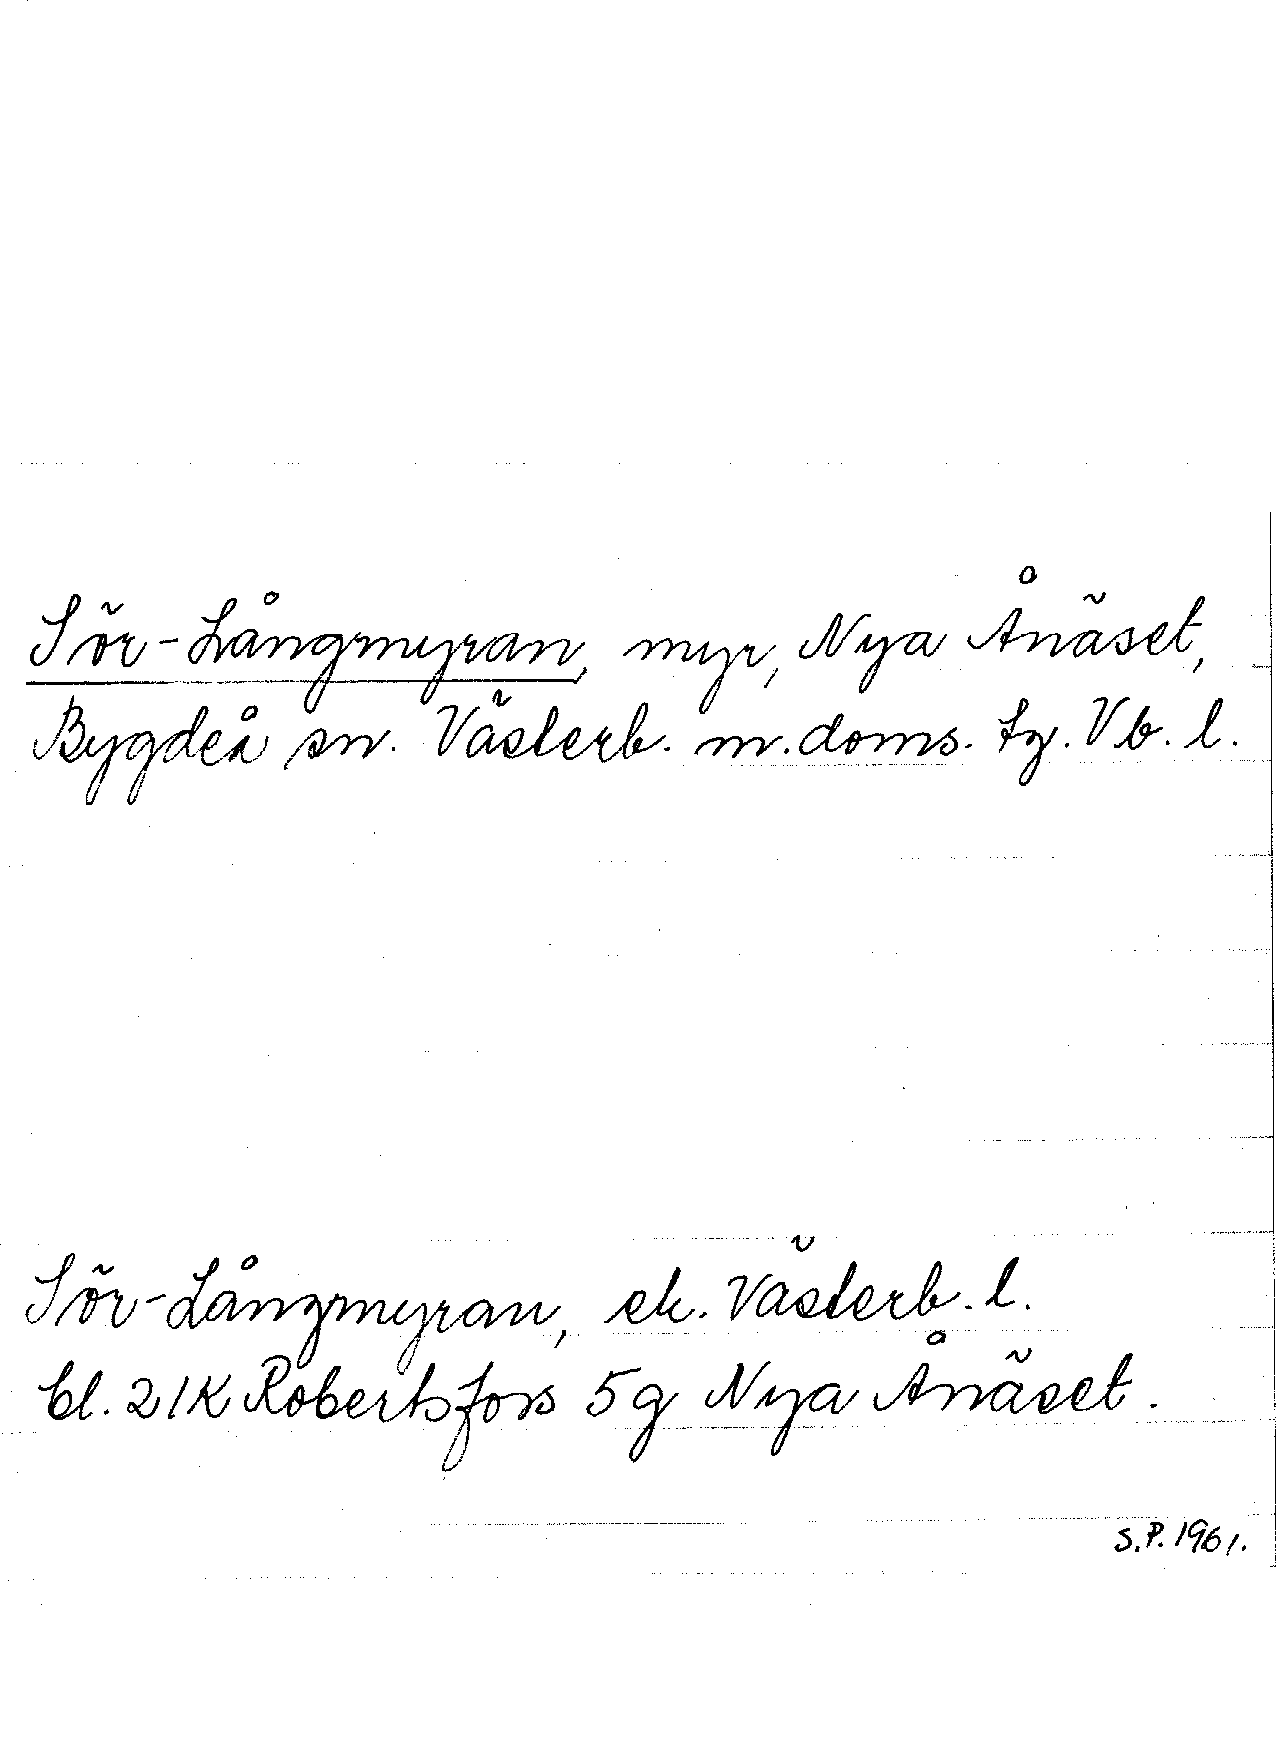 Sör-Långmyran, myr, Nya Ånäset,
Bygdeå sn. Västerb. m. doms. tg. Vb. l.
Sör-Långmyran, ek. Västerb. l.
bl. 21K Robertsfors 5g Nya Ånäset.
S.P. 1961.